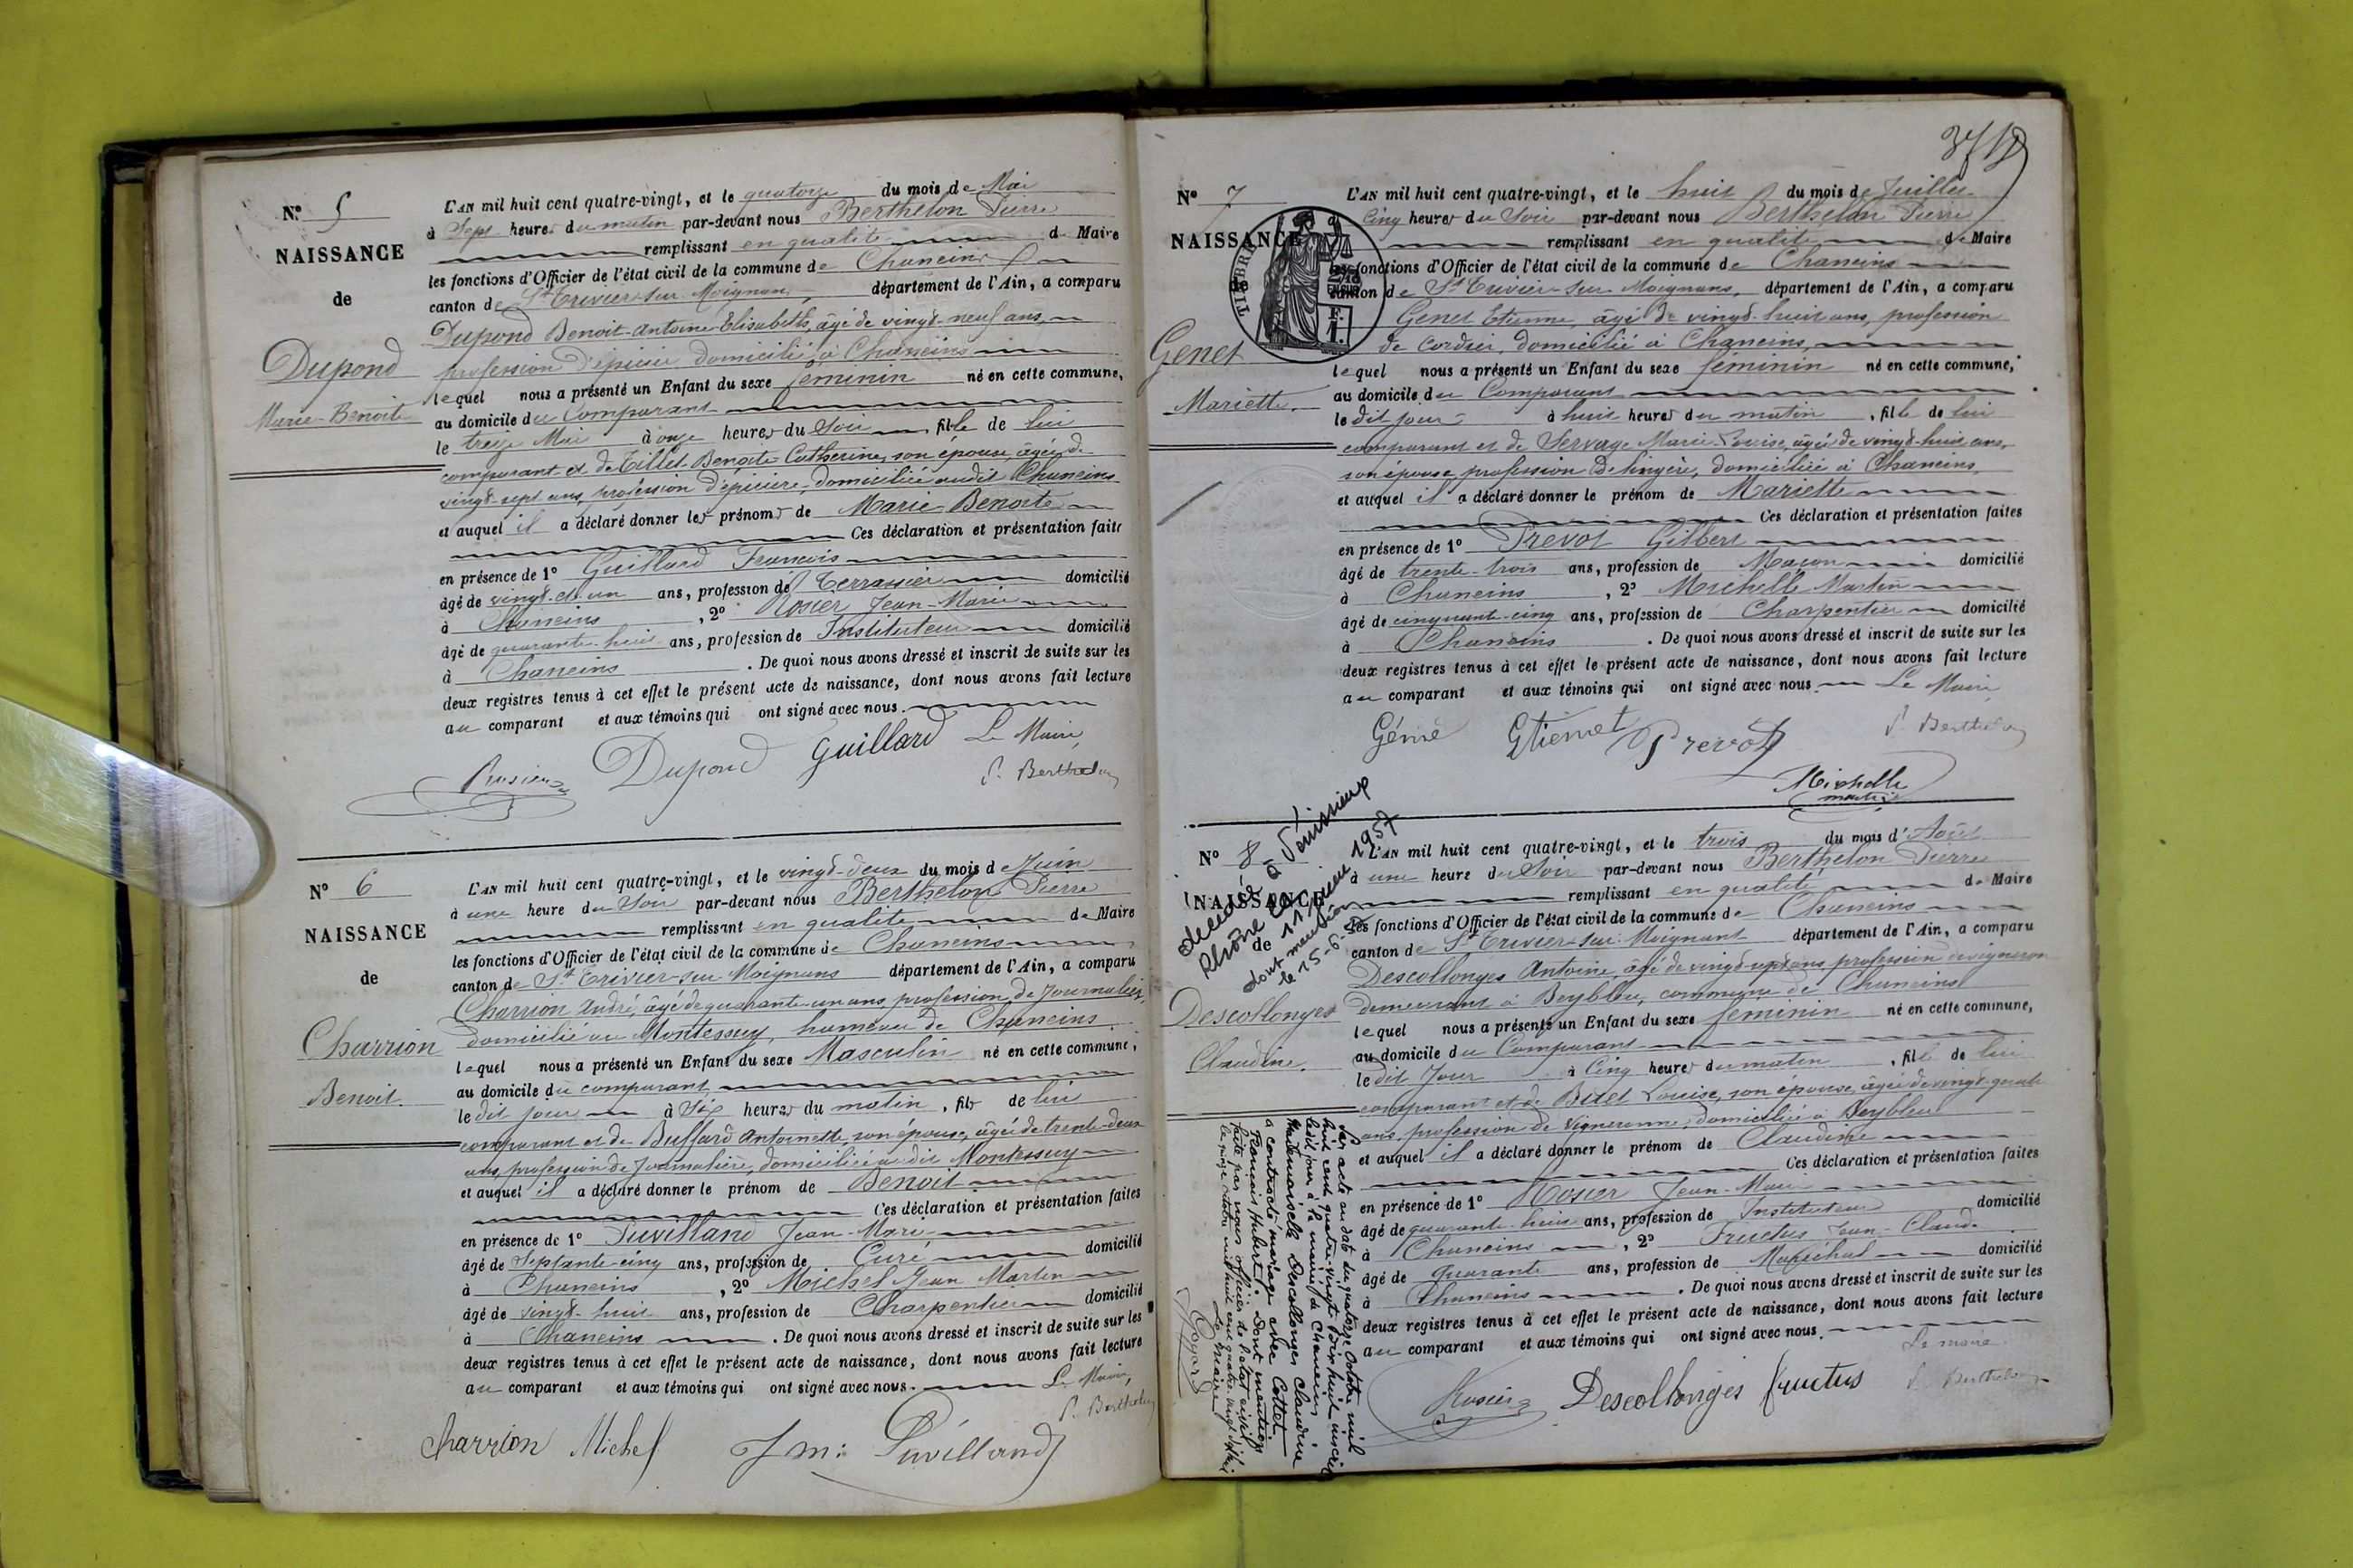 N° 5
NAISSANCE
de
Dupond
Marie-Benoite
L'AN mil huit cent quatre-vingt, et le quatorze du mois de Mai
à Sept heures du matin par-devant nous Berthelon Pierre
remplissant en qualité de Maire
les fonctions d'Officier de l'état civil de la commune de Chaneins
canton de St Trivier-sur-Moignans, département de l'Ain, a comparu
Dupond Benoit-Antoine-Elisabeth, âgé de vingt-neuf ans,
profession d'épicier domicilié à Chaneins
lequel nous a présenté un Enfant du sexe féminin né en cette commune,
au domicile du Comparant
le treize Mai à onze heures du Soir fille de lui
comparant et de Tillet Benoite Catherine, son épouse âgée de
vingt-sept ans, profession d'épicière, domiciliée audit Chaneins
et auquel il a déclaré donner les prénoms de Marie-Benoite
Ces déclaration et présentation faites
en présence de 1° Guillard François
âgé de vingt-et-un ans, profession de Terrassier domicilié
à Chaneins, 2° Rosier Jean-Marie
âgé de quarante-huit ans, profession de Instituteur domicilié
à Chaneins. De quoi nous avons dressé et inscrit de suite sur les
deux registres tenus à cet effet le présent acte de naissance, dont nous avons fait lecture
au comparant et aux témoins qui ont signé avec nous.
Rosier Dupond Guillard Le Maire,
P. Berthelon
N° 6
NAISSANCE
de
Charrion
Benoit.
L'AN mil huit cent quatre-vingt, et le vingt-deux du mois de Juin
à une heure du Soir par-devant nous Berthelon Pierre
remplissant en qualité de Maire
les fonctions d'Officier de l'état civil de la commune de Chaneins
canton de St Trivier-sur-Moignans département de l'Ain, a comparu
Charrion André, âgé de quarante-un ans profession de Journalier,
domicilié au Montessuy, hameau de Chaneins
lequel nous a présenté un Enfant du sexe Masculin né en cette commune,
au domicile du comparant
le dit jour à Six heures du matin, fils de lui
comparant et de Buffard Antoinette, son épouse, âgée de trente-deux
ans, profession de Journalière, domiciliée au dit Montessuy
et auquel il a déclaré donner le prénom de Benoit
Ces déclaration et présentation faites
en présence de 1° Puvilland Jean-Marie
âgé de Septante-cinq ans, profession de Curé domicilié
à Chaneins, 2° Michel Jean Martin
âgé de vingt-huit ans, profession de Charpentier domicilié
à Chaneins. De quoi nous avons dressé et inscrit de suite sur les
deux registres tenus à cet effet le présent acte de naissance, dont nous avons fait lecture
au comparant et aux témoins qui ont signé avec nous. Le Maire,
P. Berthelon
Charrion Michel J m: Puvilland
N° 7
NAISSANCE
de
TIMBRE
Genet
Mariette.
L'AN mil huit cent quatre-vingt, et le huit du mois de Juillet
à Cinq heures du Soir par-devant nous Berthelon Pierre
remplissant en qualité de Maire
les fonctions d'Officier de l'état civil de la commune de Chaneins
canton de St Trivier-sur-Moignans, département de l'Ain, a comparu
Genet Etienne, âgé de vingt-huit ans, profession
de Cordier, domicilié à Chaneins,
lequel nous a présenté un Enfant du sexe féminin né en cette commune,
au domicile du Comparant
le dit jour à huit heures du matin, fille de lui
comparant et de Servage Marie-Louise, âgée de vingt-huit ans,
son épouse, profession de lingère, domiciliée à Chaneins,
et auquel il a déclaré donner le prénom de Mariette
Ces déclaration et présentation faites
en présence de 1° Prevot Gilbert
âgé de trente-trois ans, profession de Maçon domicilié
à Chaneins, 2° Michelle Martin
âgé de cinquante-cinq ans, profession de Charpentier domicilié
à Chaneins. De quoi nous avons dressé et inscrit de suite sur les
deux registres tenus à cet effet le présent acte de naissance, dont nous avons fait lecture
au comparant et aux témoins qui ont signé avec nous. Le Maire,
Etienne Prevot P. Berthelon
Michelle
martin
N° 8
NAISSANCE
de
Descollonges
Claudine.
décédée à Vénissieux
Rhône le 11 1957
dont mention
le 15-6-
L'AN mil huit cent quatre-vingt, et le trois du mois d'Août
à une heure du Soir par-devant nous Berthelon Pierre
remplissant en qualité de Maire
les fonctions d'Officier de l'état civil de la commune de Chaneins
canton de St Trivier-sur-Moignans département de l'Ain, a comparu
Descollonges Antoine, âgé de vingt-sept ans, profession de vigneron
demeurant à Beybleu, commune de Chaneins
lequel nous a présenté un Enfant du sexe féminin né en cette commune,
au domicile du Comparant
le dit Jour à Cinq heures du matin, fille de lui
comparant et de Louise, son épouse, âgée de vingt-quatre
ans, profession de Vigneronne, domiciliée à Beybleu
et auquel il a déclaré donner le prénom de Claudine
Ces déclaration et présentation faites
en présence de 1° Rosier Jean-Marie
âgé de quarante-huit ans, profession de Instituteur domicilié
à Chaneins, 2° Fructus Jean-Claude
âgé de Quarante ans, profession de Maréchal domicilié
à Chaneins. De quoi nous avons dressé et inscrit de suite sur les
deux registres tenus à cet effet le présent acte de naissance, dont nous avons fait lecture
au comparant et aux témoins qui ont signé avec nous.
Le maire
Rosier Descollonges fructus P. Berthelon
Par acte en date du quatorze Octobre mil
huit cent quatre-vingt Dix huit inscrit
ledit jour à la mairie de Chaneins
Mademoiselle Descollonges Claudine
a contracté mariage avec Cottet
François Hubert. Dont mention
faite par nous officier de l'état civil
Le maire